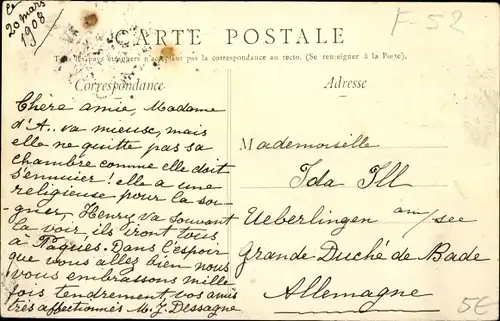 Le
20 mars
1908
F-52
CARTE POSTALE
Tous les pays étrangers n'acceptent pas la correspondance au recto. (Se renseigner à la Poste).
Correspondance
Chère amie, Madame
d'A. va mieux, mais
elle ne quitte pas sa
chambre comme elle doit
s'ennuier! elle a une
religieuse pour la soi-
gner, Henry va souvant
la voir, ils iront tous
à Pâques. Dans l'espoir
que vous alles bien nous
vous embrassons mille
fois tendrement, vos amis
très affectionnés M. J. Dessagne
Adresse
Mademoiselle
Ida Ill
Ueberlingen am/see
Grande Duché de Bade
Allemagne
5€